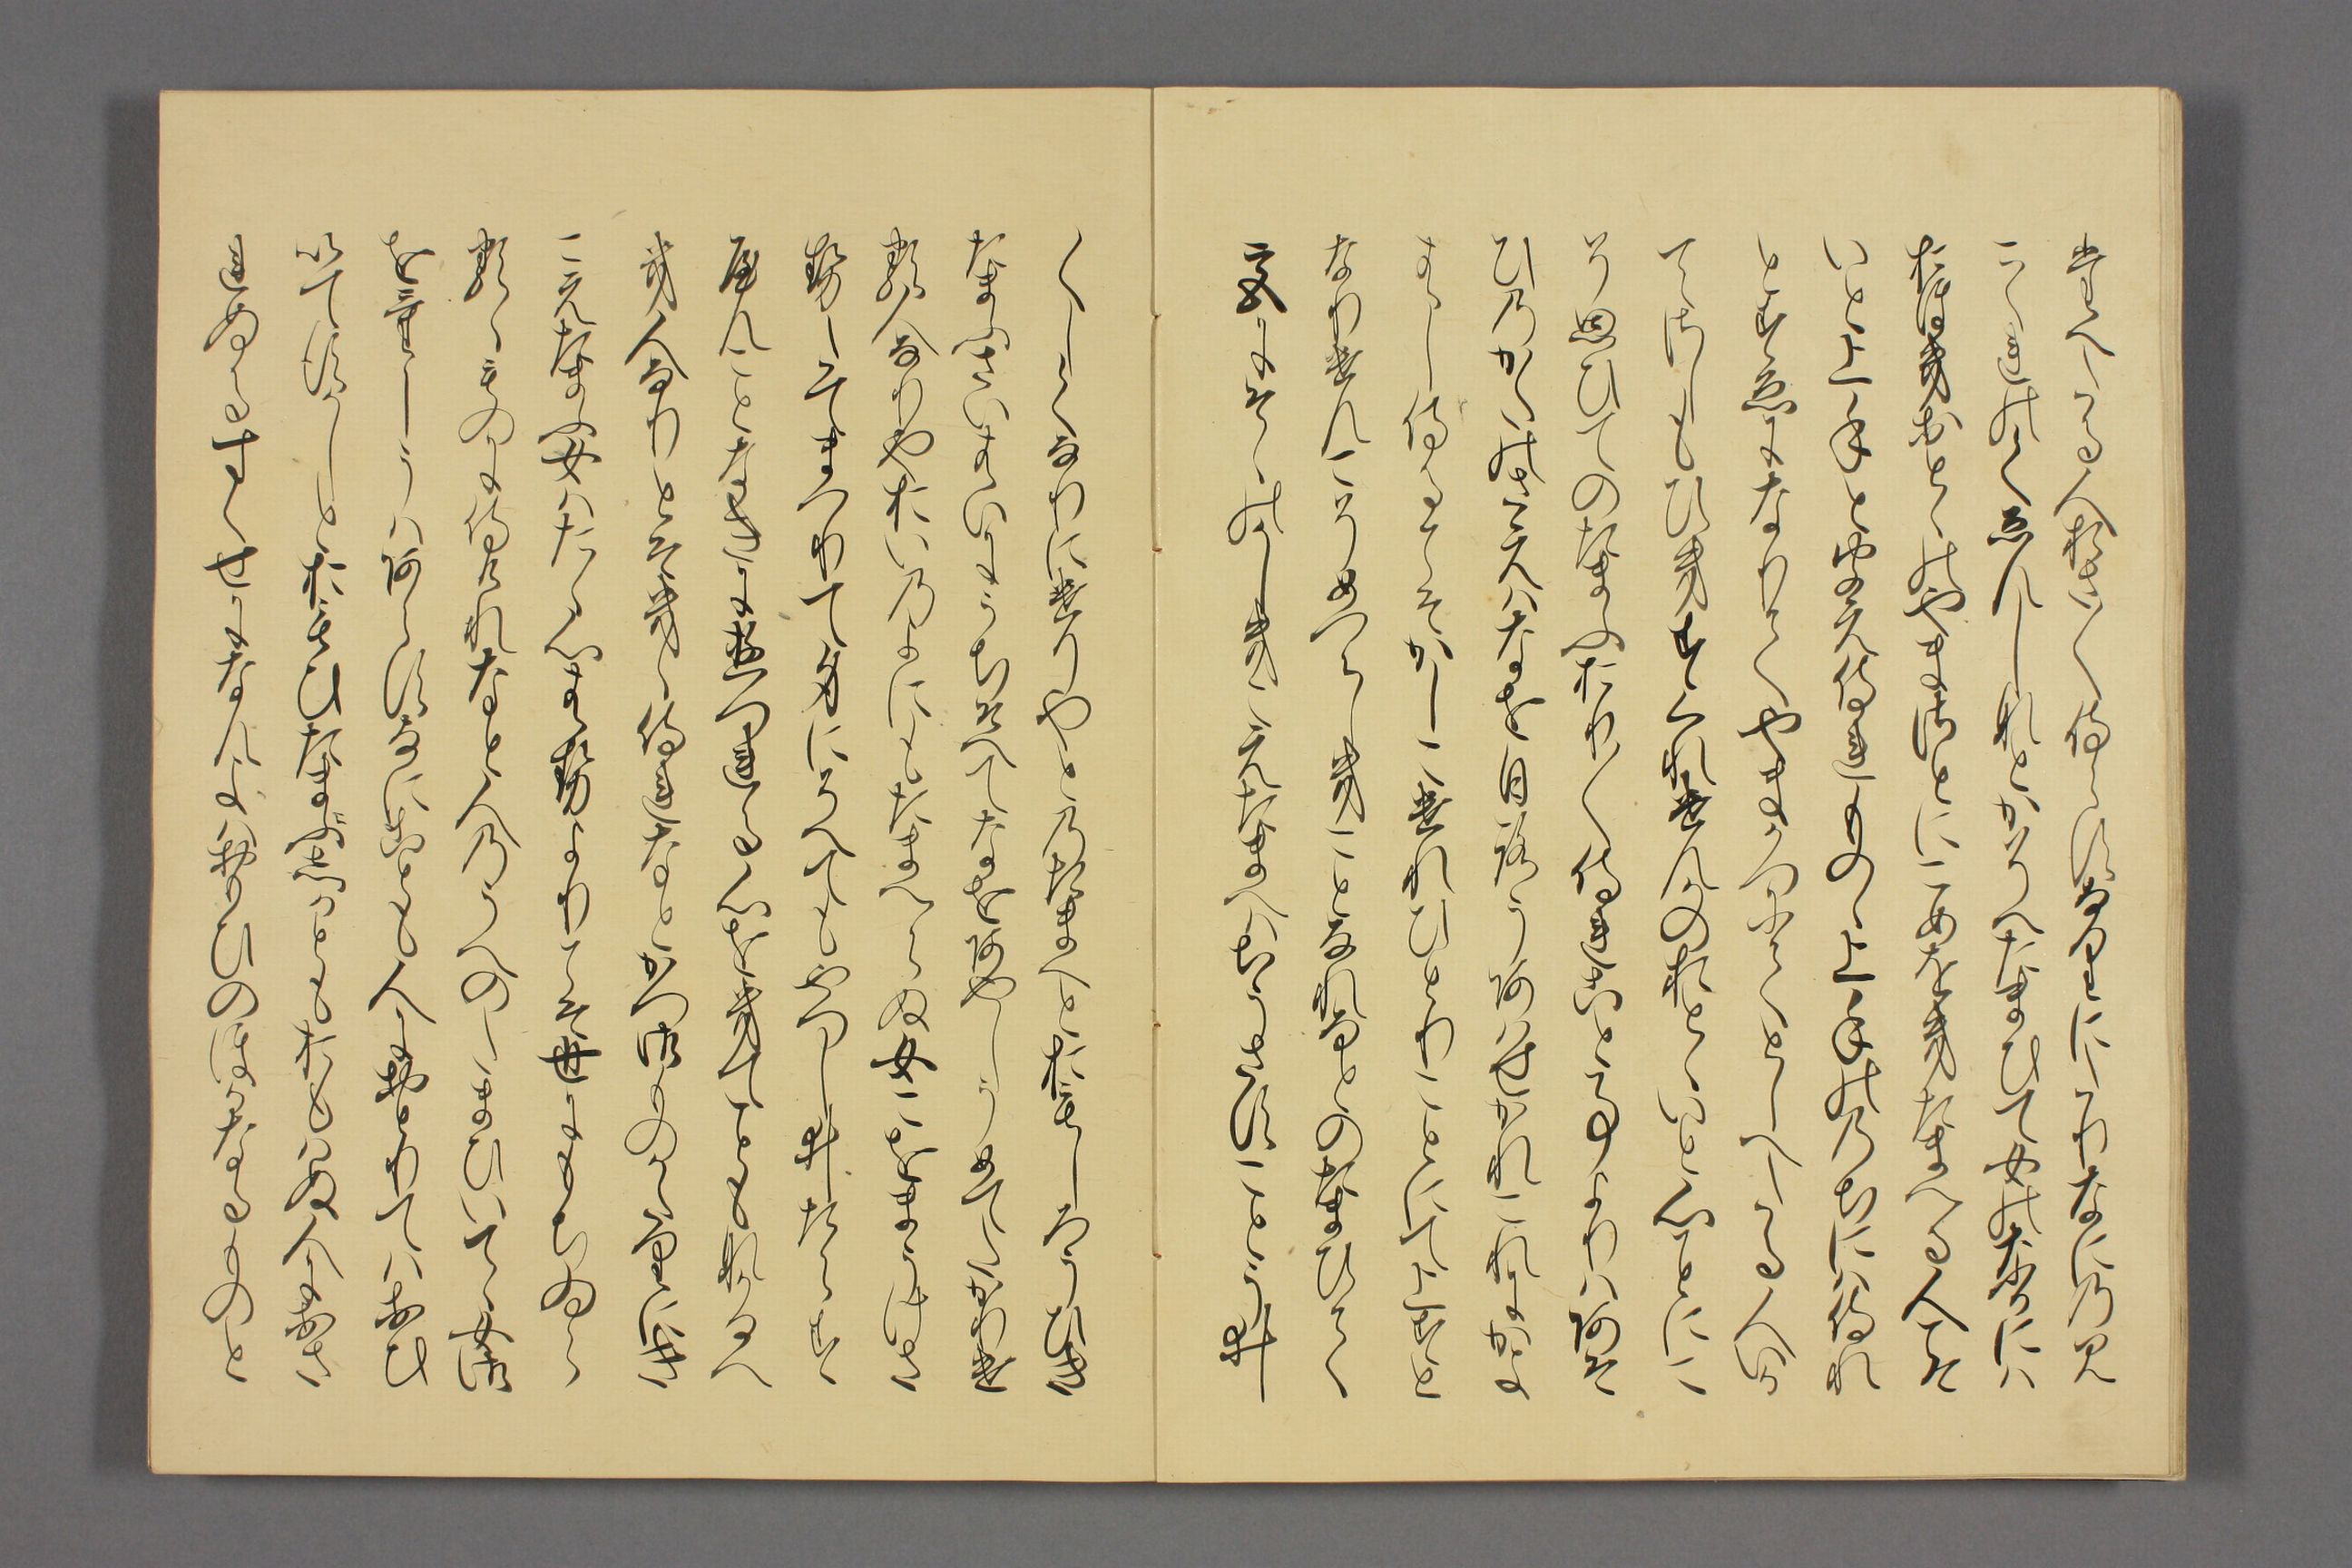 つたへたる人おさ〳〵侍らすなりにたりなに乃み
こくれ乃くゑんしなとかそへたまひて女のなかには
おほきおとゝのやまさとにこめをきたまへる人こそ
いと上手ときゝ侍れものゝ上手のゝちには侍れ
とすゑになりてやまかつにてとしへたる人の
いかてさしもひきすくれけんかのおとゝいと心ことにこ
そ思ひてのたまふおり〳〵侍れこと事よりはあそ
ひ乃かたのさえはなをひろうあはせかれこれにかよ
はし侍るこそかしこけれひとりことにて上手と
なりけんこそめつらしきことなれなとのたまひて
宮にそゝのかしきこえたまへはちうさすことうゐ
〳〵しくなりにけりやとのたまへとおもしろうひき
たまふさいはいにうちそへてなをあやしうめてたかりけ
る人なりやおい乃よにもたまへらぬ女こをまうけさ
せたてまつりて身にそへてもやつしゐたらす
やんことなきにゆつれる心おきてこともなかるへ
き人なりとそきゝ侍なとかつ御ものかたりきこ
こえたまふ女はたゝ心はせよりこそ世にもちゐら
るゝものに侍けれなと人乃うへのたまひいてゝ女御
をけしうはあらすなにことも人にをとりてはおひ
いてすかしと思ひたまへしかとおもはぬ人にをさ
れぬるすくせになん世はおもひのほかなるものと